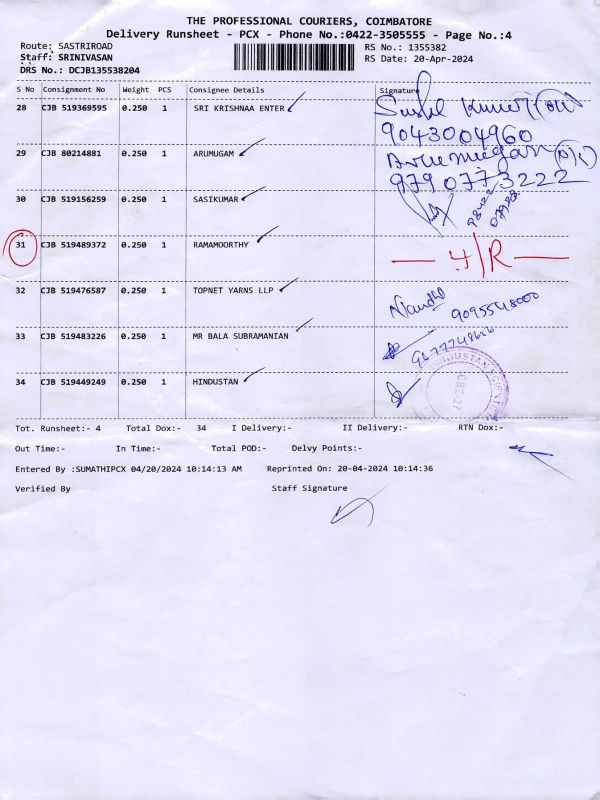 THE PROFESSIONAL COURIERS, COIMBATORE
Delivery Runsheet - PCX - Phone No.:0422-3505555 - Page No.:4
Route: SASTRIROAD RS No.: 1355382
Staff: SRINIVASAN RS Date: 20-Apr-2024
DRS No.: DCJB135538204
S No Consignment No Weight PCS Consignee Details Signature
28 CJB 519369595 0.250 1 SRI KRISHNAA ENTER Sushil Kumar
9043004960
29 CJB 80214881 0.250 1 ARUMUGAM Arumugam
9790773222
30 CJB 519156259 0.250 1 SASIKUMAR 98422
31 CJB 519489372 0.250 1 RAMAMOORTHY
32 CJB 519476587 0.250 1 TOPNET YARNS LLP 9095548000
33 CJB 519483226 0.250 1 MR BALA SUBRAMANIAN
34 CJB 519449249 0.250 1 HINDUSTAN HINDUSTAN
Tot. Runsheet:- 4 Total Dox:- 34 I Delivery:- II Delivery:- RTN Dox:-
Out Time:- In Time:- Total POD:- Delvy Points:-
Entered By :SUMATHIPCX 04/20/2024 10:14:13 AM Reprinted On: 20-04-2024 10:14:36
Verified By Staff Signature